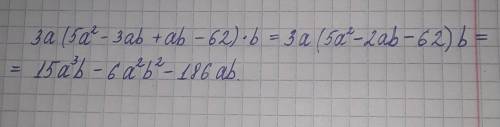 3a(5a² - 3ab + ab - 62)·b = 3a(5a² - 2ab - 62)b =
= 15a³b - 6a²b² - 186ab.